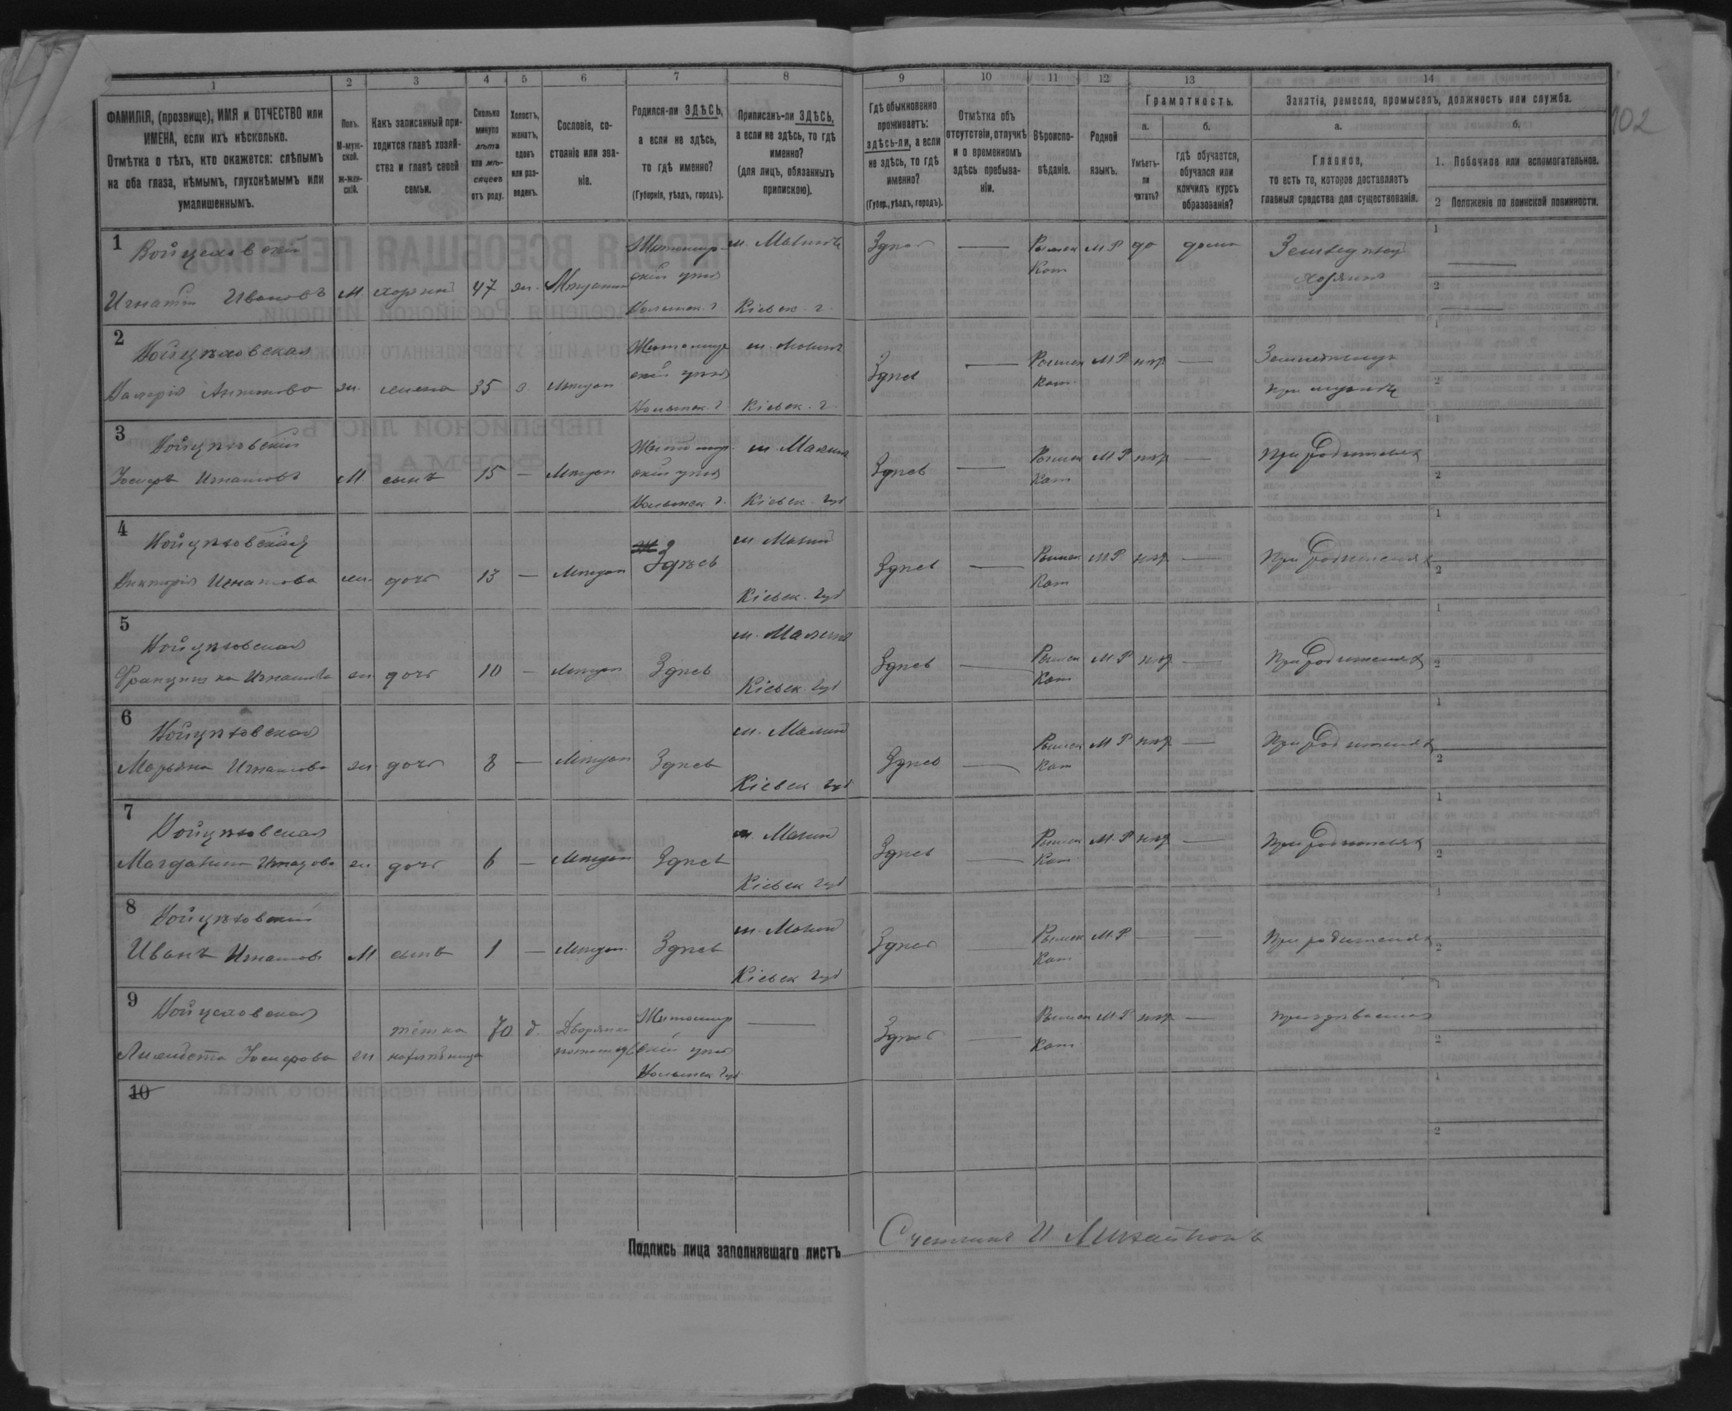 102
1 2 3 4 5 6 7 8 9 10 11 12 13 14
ФАМИЛІЯ, (прозвище), ИМЯ и ОТЧЕСТВО или
ИМЕНА, если ихъ нѣсколько.
Отмѣтка о тѣхъ, кто окажется: слѣпымъ
на оба глаза, нѣмымъ, глухонѣмымъ или
умалишеннымъ.
Полъ.
М-муж-
ской.
ж-жен-
скій.
Какъ записанный при-
ходится главѣ хозяй-
ства и главѣ своей
семьи.
Сколько
минуло
лѣтъ
или мѣ-
сяцевъ
отъ роду.
Холостъ,
женатъ,
вдовъ
или раз-
веденъ.
Сословіе, со-
стояніе или зва-
ніе.
Родился-ли ЗДѢСЬ,
а если не здѣсь,
то гдѣ именно?
(Губернія, уѣздъ, городъ).
Приписанъ-ли ЗДѢСЬ,
а если не здѣсь, то гдѣ
именно?
(для лицъ, обязанныхъ
припискою).
Гдѣ обыкновенно
проживаетъ:
здѣсь-ли, а если
не здѣсь, то гдѣ
именно?
(Губер., уѣздъ, городъ).
Отмѣтка объ
отсутствіи, отлучкѣ
и о временномъ
здѣсь пребыва-
ніи.
Вѣроиспо-
вѣданіе.
Родной
языкъ.
Грамотность.
а.
Умѣетъ-
ли
читать?
б.
Гдѣ обучается,
обучался или
кончилъ курсъ
образованія?
Занятіе, ремесло, промыселъ, должность или служба.
а.
Главное,
то есть то, которое доставляетъ
главныя средства для существованія.
б.
1. Побочное или вспомогательное.
2 Положеніе по воинской повинности.
1 Войцеховскій
Игнатій Ивановъ М. хозяинъ 47 ж. Мѣщанин
Житомир-
скій уѣзд
Волынск. г.
м. Малинъ
Кіевск. г.
Здѣсь Римск М Р да дома
Кат
Земледѣлец
хозяинъ
2 Войцѣховская
Валерія Антонова ж. жена 35 з мѣщан
Житомир
скій уѣзд
Волынск. г
м. Малинъ
Кіевск. г.
Здѣсь Римск М Р нѣт
Кат
Земледѣлец
при мужѣ
3 Войцѣховскій
Іосифъ Игнатовъ М сынъ 15 мѣщан
Житомир
скій уѣзд
Волынск г.
м. Малинъ
Кіевск. губ
Здѣсь Римск М Р нѣт
Кат
при родителях
4 Войцѣховская
Викторія Игнатова ж. дочь 13 мѣщан
Здѣсь
м. Малин
Кіевск. губ
Здѣсь Римск М Р нѣт
Кат
при родителях
5 Войцѣховская
Францишка Игнатова ж. дочь 10 мѣщан
Здѣсь
м. Малинъ
Кіевск губ
Здѣсь Римск М Р нѣт
Кат
при родителях
6 Войцѣховская
Марьяна Игнатова ж. дочь 8 мѣщан
Здѣсь
м. Малин
Кіевск губ
Здѣсь Римск М Р нѣт
Кат
при родителях
7 Войцѣховская
Магдалина Игнатова ж дочь 6 мѣщан
Здѣсь
м Малин
Кіевск губ
Здѣсь Римск М Р нѣт
Кат
при родителях
8 Войцѣховскій
Иванъ Игнатовъ М сынъ 1 мѣщан
Здѣсь
м. Малин
Кіевск губ
Здѣсь Римск М Р
Кат
при родителях
9 Войцеховская
Іосифова ж тётка 70 д. Дворянка
Житомир
скій уѣзд
Волынск губ
Здѣсь Римск М Р нѣт
Кат
10
Подпись лица заполнявшаго листъ Счетчикъ И